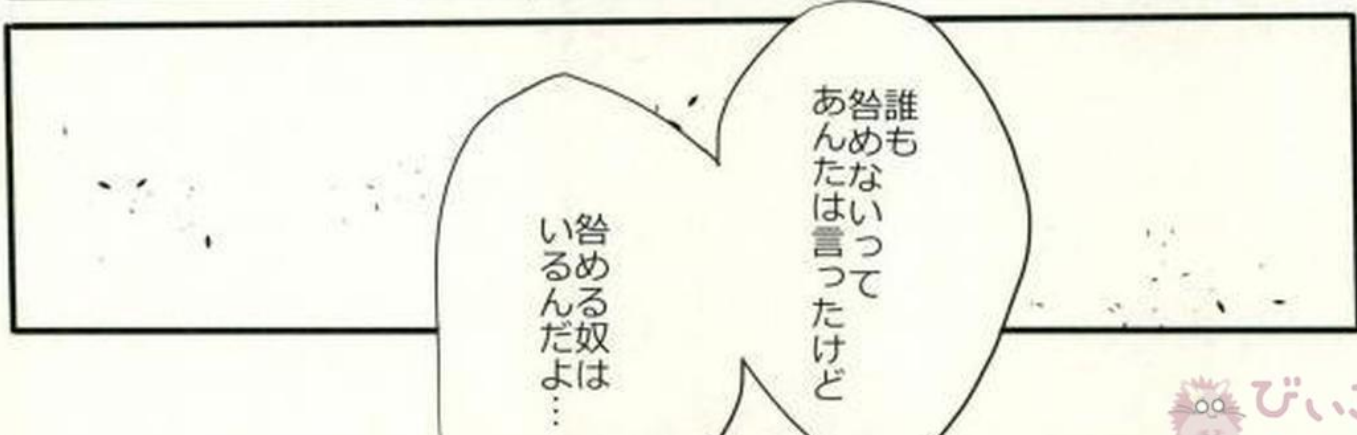 誰も
咎めないって
あんたは言ったけど
咎める奴は
いるんだよ…
びぃ